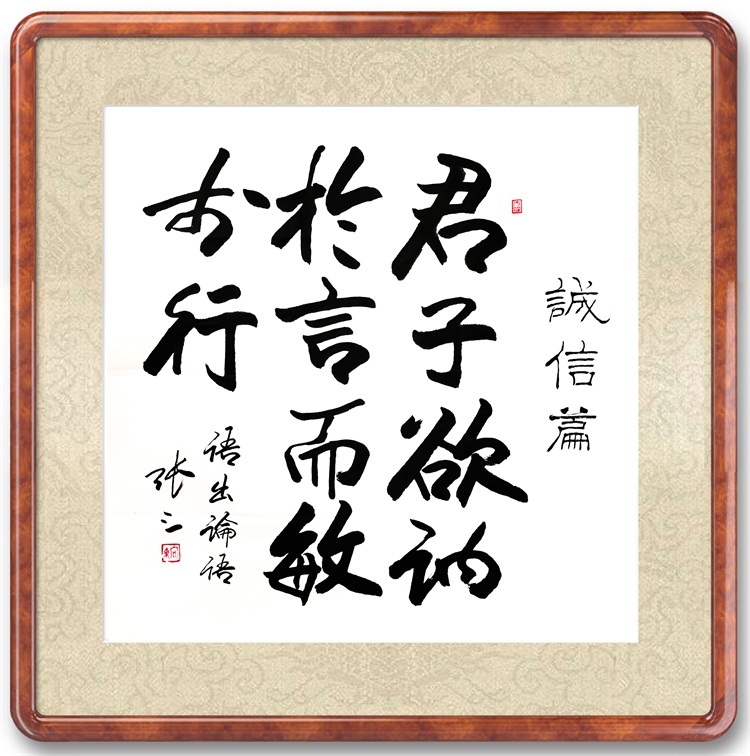 誠信篇
君子欲訥
於言而敏
於行
语出论语
张三